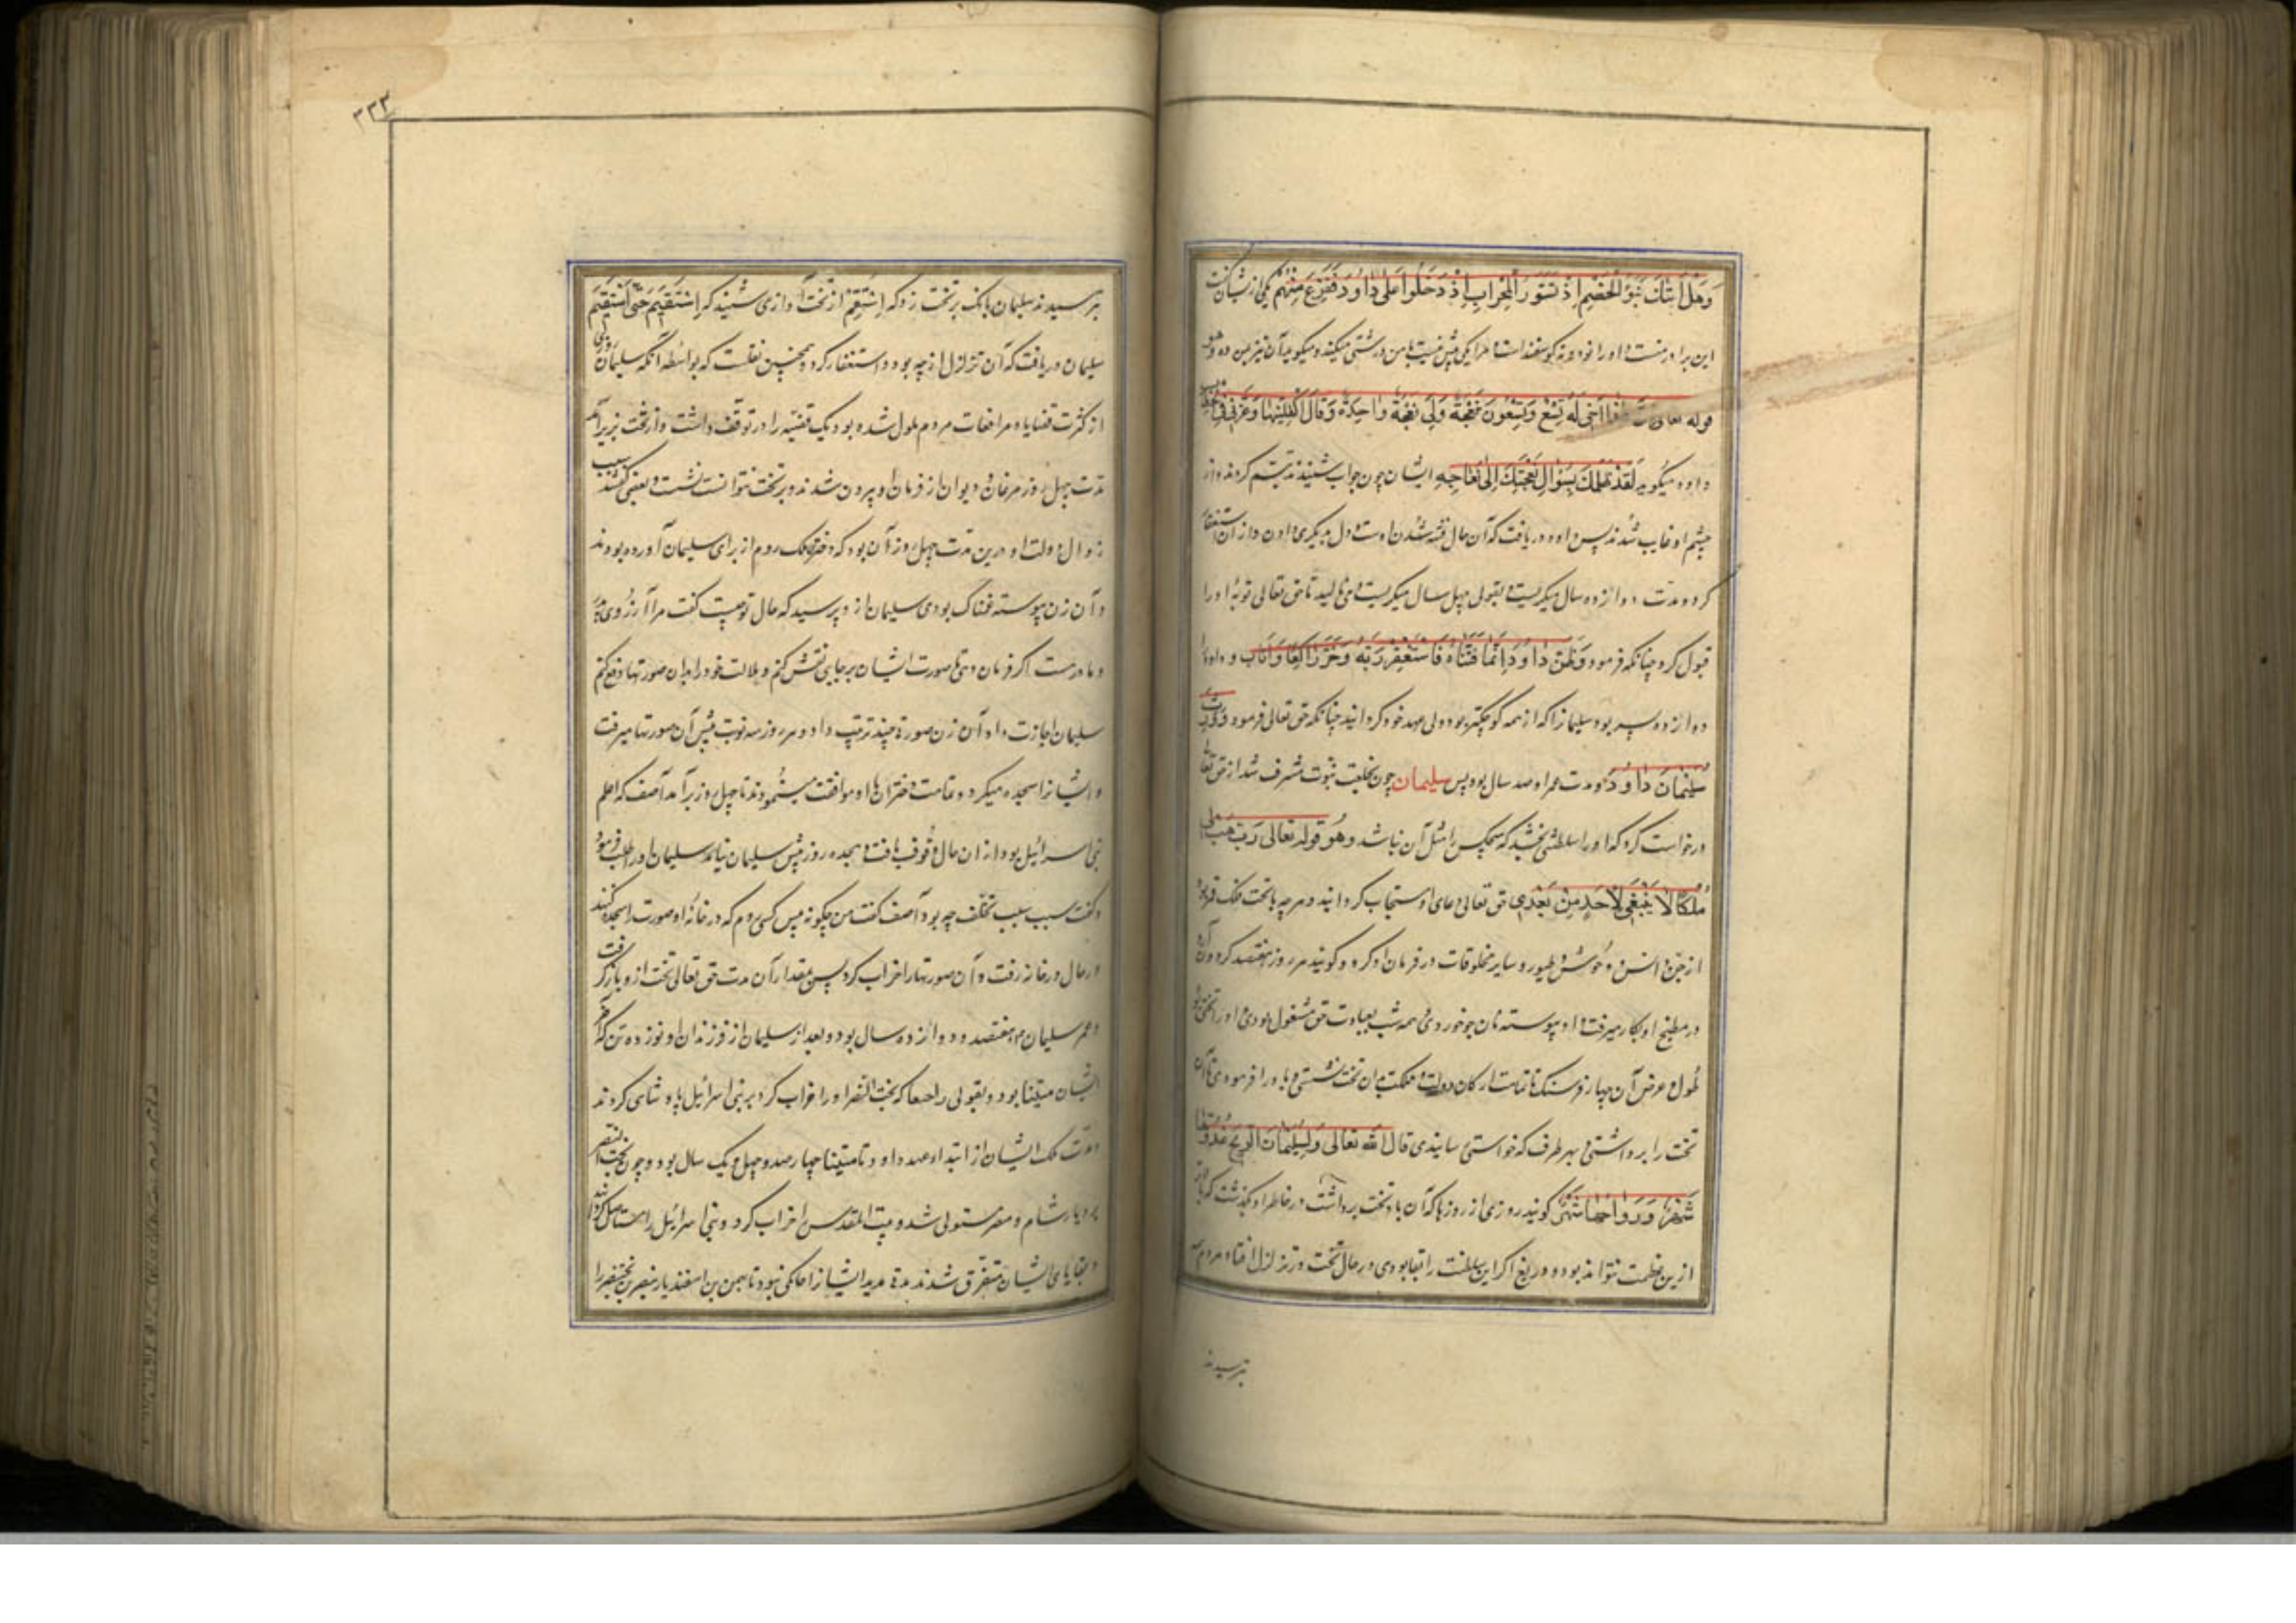 وَهَلْ أَتٰكَ نَبَؤُ الْخَصْمِ إِذْ تَسَوَّرُ الْمِحْرَابَ إِذْ دَخَلُوا عَلٰى دَاوُودَ فَفَزِعَ مِنْهُمْ یکی ازیشان گفت
این برادر منست و او را نود و نه گوسفند است و مرا یکی بیش نیست با من درشتی میکند و میگوید آن نیز بمن ده و هو
قوله تعالی أَخِی لَهُ تِسْعٌ وَتِسْعُونَ نَعْجَةً وَلِیَ نَعْجَةٌ وَاحِدَةٌ وَقَالَ أَكْفِلْنِیهَا وَعَزَّنِی فِی
داود میگوید لَقَدْ ظَلَمَكَ بِسُؤَالِ نَعْجَتِكَ إِلٰى نِعَاجِهِ ایشان چون جواب شنیدند تبسم کردند و از
چشم او غایب شدند پس داود دریافت که آن حال فتنه شدن اوست و دل بدیگری دادن و از آن استغفار
کرد و مدت دوازده سال میگریست و بقولی چهل سال میگریست و می نالید تا حق تعالی توبه او را
قبول کرد چنانکه فرمود وَظَنَّ دَاوُودُ أَنَّمَا فَتَنَّاهُ فَاسْتَغْفَرَ رَبَّهُ وَخَرَّ رَاكِعًا وَأَنَابَ و داود را
دوازده پسر بود سلیمان را که از همه کوچکتر بود ولی عهد خود گردانید چنانکه حق تعالی فرمود وَوَرِثَ
سُلَیْمَانُ دَاوُودَ و مدت عمر او صد سال بود پس سلیمان چون بخلعت نبوت مشرف شد از حق تعالی
درخواست کرد که او را سلطنتی بخشد که هیچکس را مثل آن نباشد وهُوَ قوله تعالی رَبِّ هَبْ لِی
مُلْكًا لَا یَنْبَغِی لِأَحَدٍ مِنْ بَعْدِی حق تعالی دعای او مستجاب گردانید و هر چه با تحت فلک قمر بود
از جن و انس و وحوش و طیور و سایر مخلوقات در فرمان او کرد و گویند هر روز هفتصد کر و آن
در مطبخ او بکار میرفت و او پیوسته نان جو خوردی و همه شب بعبادت حق مشغول بودی و او را تختی بود
طول و عرض آن چهار فرسنگ تا تمامت ارکان دولت و مملکت بر آن تخت نشستی و باد را فرمودی تا آن
تخت را برداشتی و بهر طرف که خواستی رسانیدی قال الله تعالی وَلِسُلَیْمَانَ الرِّیحَ غُدُوُّهَا
شَهْرٌ وَرَوَاحُهَا شَهْرٌ گویند روزی از روزها که آن باد تخت برداشت در خاطر او بگذشت که
ازین عظمت نتواند بود و دریغ اگر این سلطنت را بقا بودی در حال تخت در تزلزل افتاد مردم
بترسیدند
۳۳۳
بترسیدند سلیمان بانک بر تخت زد که اِسْتَقِمْ از تخت آوازی شنید که اِسْتَقِیمْ حَتّٰى أَسْتَقِیمَ
سلیمان دریافت که آن تزلزل از چه بود و استغفار کرد و همچنین نقلست که بواسطه آنکه سلیمان روزی
از کثرت قضایا و مرافعات مردم ملول شده بود یک قضیه را در توقف داشت و از تخت بزیر آمد
مدت چهل روز مرغان و دیوان از فرمان او بیرون شدند و بر تخت نتوانست نشست و بعضی گفتند سبب
زوال دولت او درین مدت چهل روز آن بود که دختر ملک روم از برای سلیمان آورده بودند
و آن زن پیوسته غمناک بودی سلیمان از و پرسید که حال تو چیست گفت مرا آرزوی
و مادرست اگر فرمان دهی تا صورت ایشان بر جایی نقش کنم و ملالت خود را بدان صورتها دفع کنم
سلیمان اجازت داد آن زن صورة چند ترتیب داد و هر روز سه نوبت پیش آن صورتها میرفت
و ایشان را سجده میکرد و تمامت دختران با او موافقت مینمودند تا چهل روز برآمد آصف که اعلم
بنی اسرائیل بود از ان حال وقوف یافت و هجده روز پیش سلیمان نیامد سلیمان او را طلب فرمود
و گفت سبب سبب تخلف چه بود آصف گفت من چگونه پیش کسی روم که در خانه او صورت را سجده کنند
در حال در خانه رفت و آن صورتها را خراب کرد پس بمقدار آن مدت حق تعالی تخت از و باز گرفت
و عمر سلیمان م هفتصد و دوازده سال بود و بعد از سلیمان از فرزندان او نوزده تن که آخر
ایشان متینا بود و بقولی که بخت النصر او را خراب کرد بر بنی اسرائیل پادشاهی کردند
مدت ملک ایشان از ابتداء عهد داود تا متینا چهار صد و چهل و یک سال بود و چون بخت النصر
بر دیار شام و مصر مستولی شد و بیت المقدس را خراب کرد و بنی اسرائیل را مستاصل گردانید
و بقایای ایشان متفرق شدند مدة مدید ایشان را حاکمی نبود تا بهمن بن اسفندیار